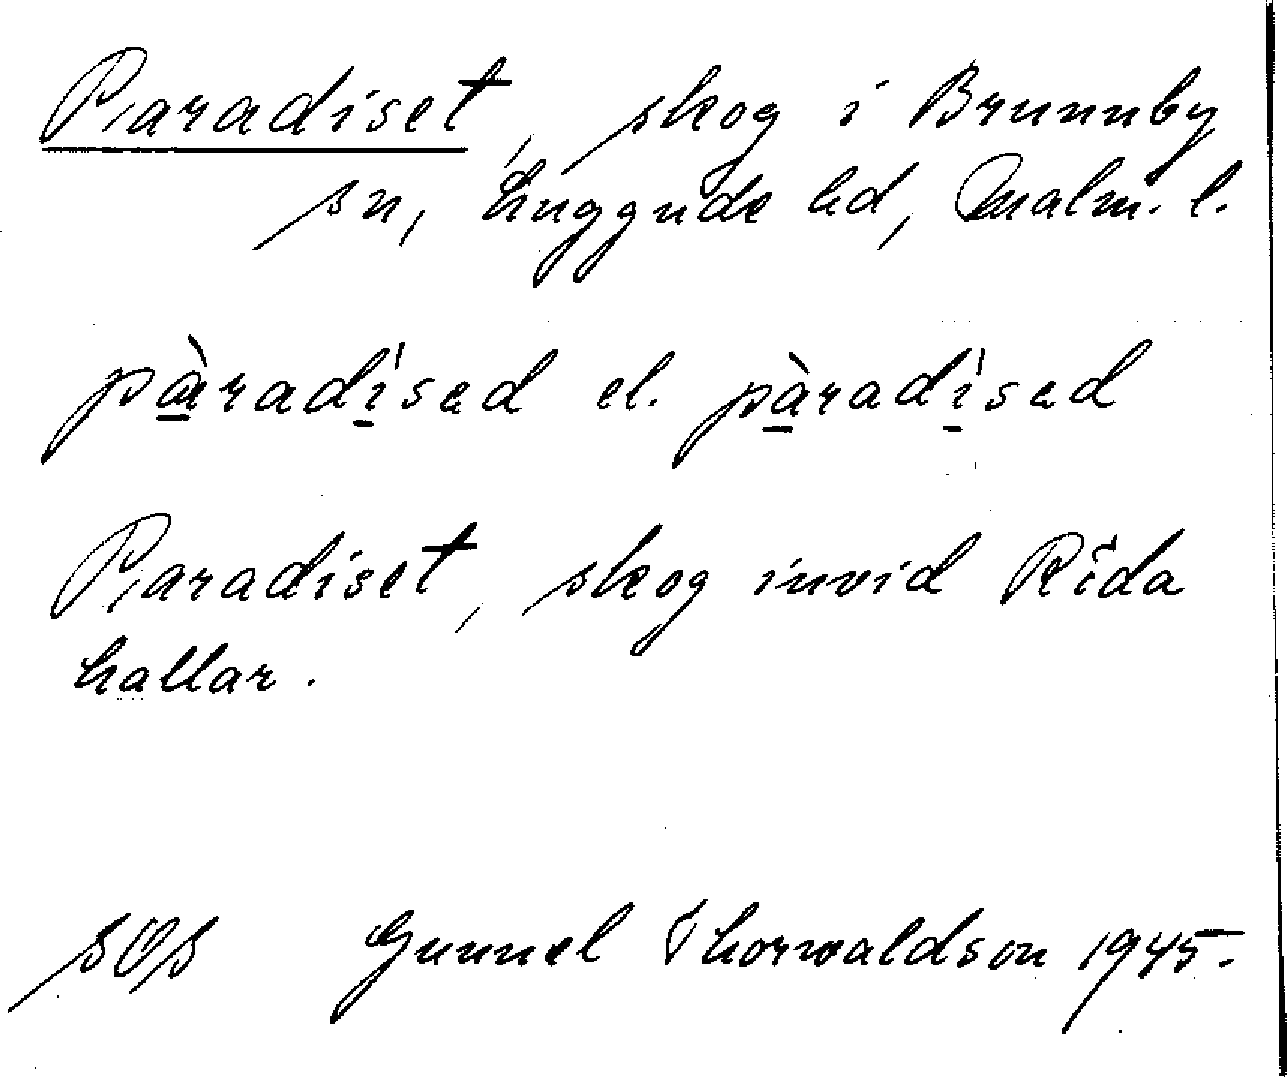 Paradiset, skog i Brunnby
sn, Luggude hd, Malm. l.
pàradísed el. pàradísed
Paradiset, skog invid Rida
hallar.
SOS Gunnel Thorwaldson 1945.